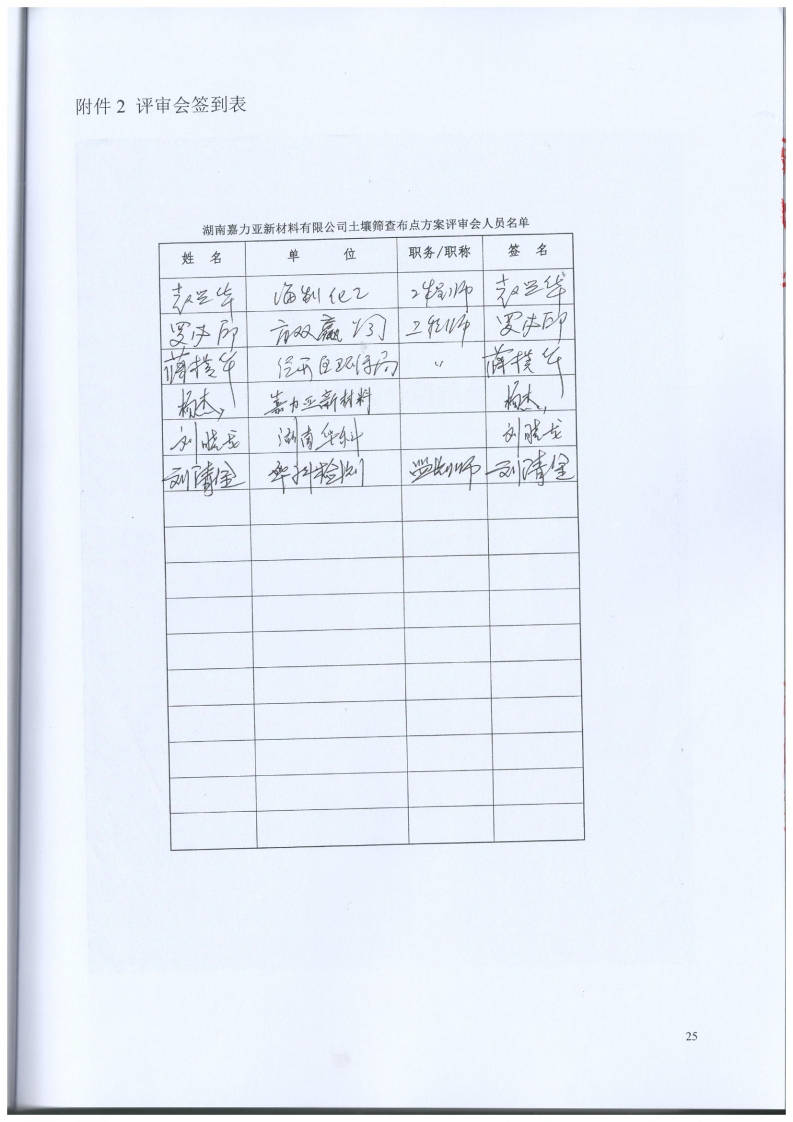 附件 2 评审会签到表
湖南嘉力亚新材料有限公司土壤筛查布点方案评审会人员名单
姓 名 单 位 职务/职称 签 名
袁兰华 海利化工 工程师 袁兰华
罗 双赢 公司 工程师 罗
蒋 华 经开区环保局 〃 蒋 华
杨杰 嘉力亚新材料 杨杰
刘晓龙 湖南华科 刘晓龙
刘清全 华科检测 监测师 刘清全
25